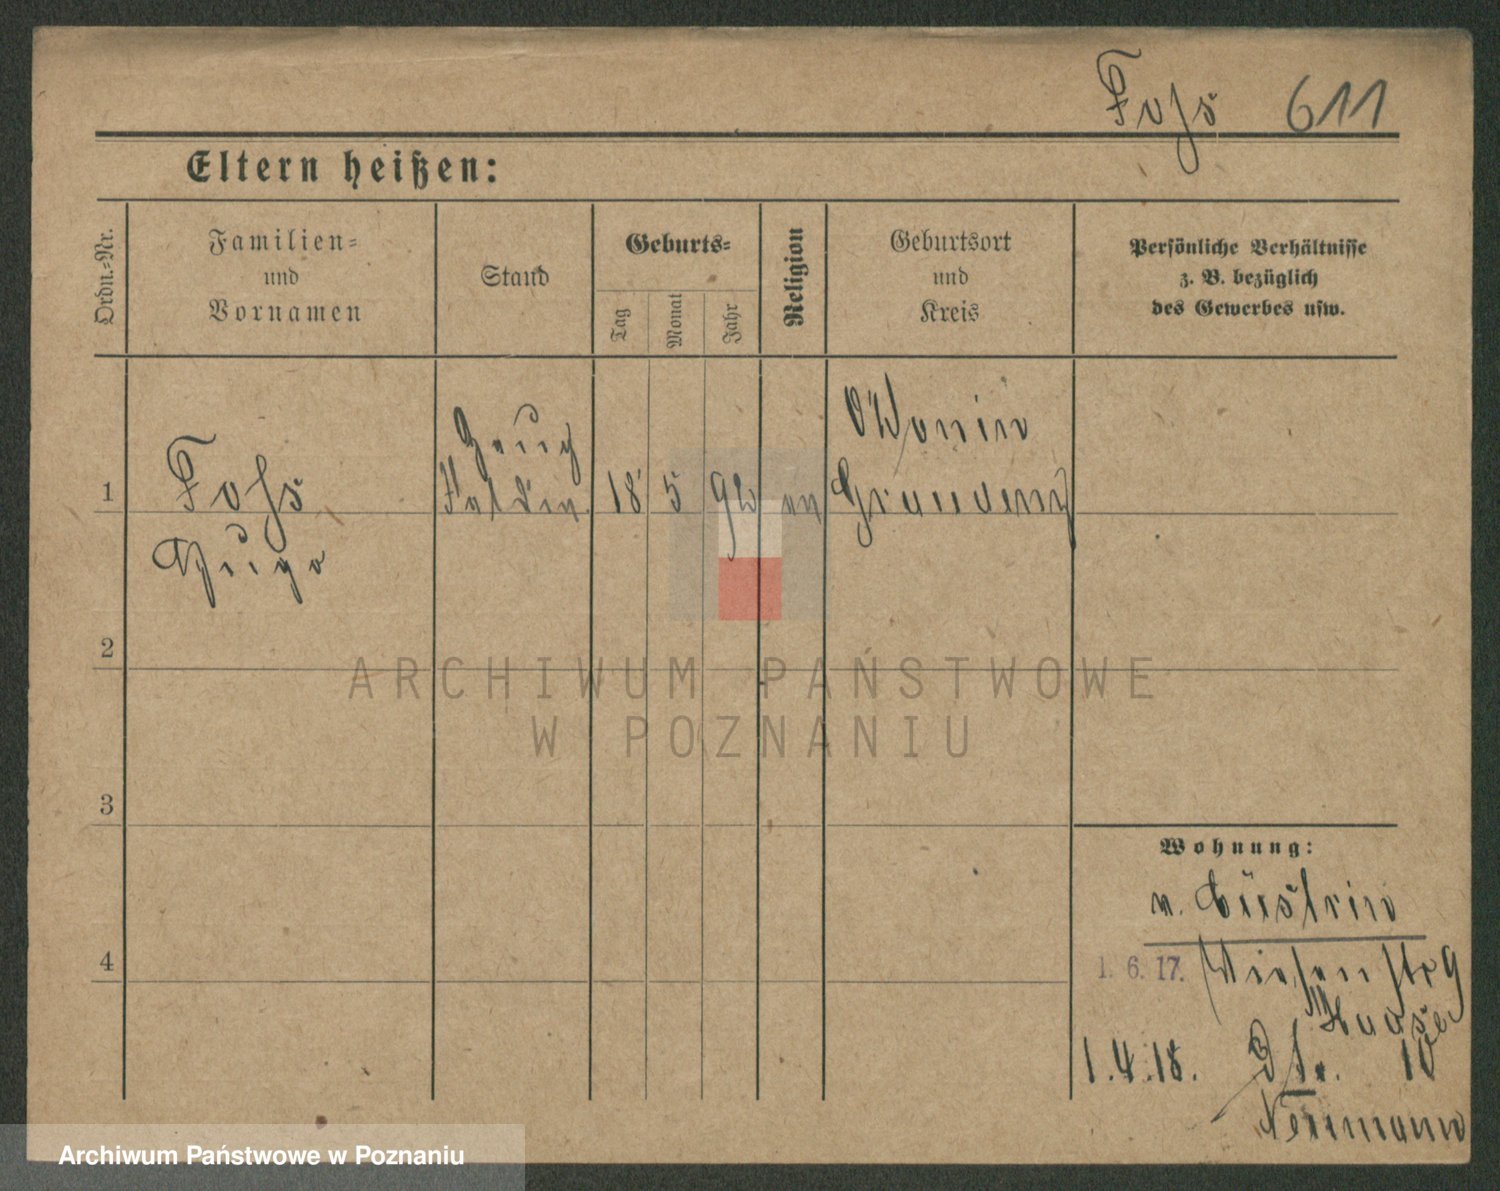 Fohs 611
Eltern heißen:
Ordn.-Nr.
Familien-
und
Vornamen
Stand
Geburts-
Tag
Monat
Jahr
Religion
Geburtsort
und
Kreis
Persönliche Verhältnisse
z. B. bezüglich
des Gewerbes usw.
1
Fohs
Hugo
Zeug
Feldw.
18
5
92
ev
Graudenz
2
ARCHIWUM PAŃSTWOWE
W POZNANIU
3
Wohnung:
v. Cüstrin
4
1. 6. 17. Wiesenstr 9
Haase
1.4.18. 10
Neumann
Archiwum Państwowe w Poznaniu